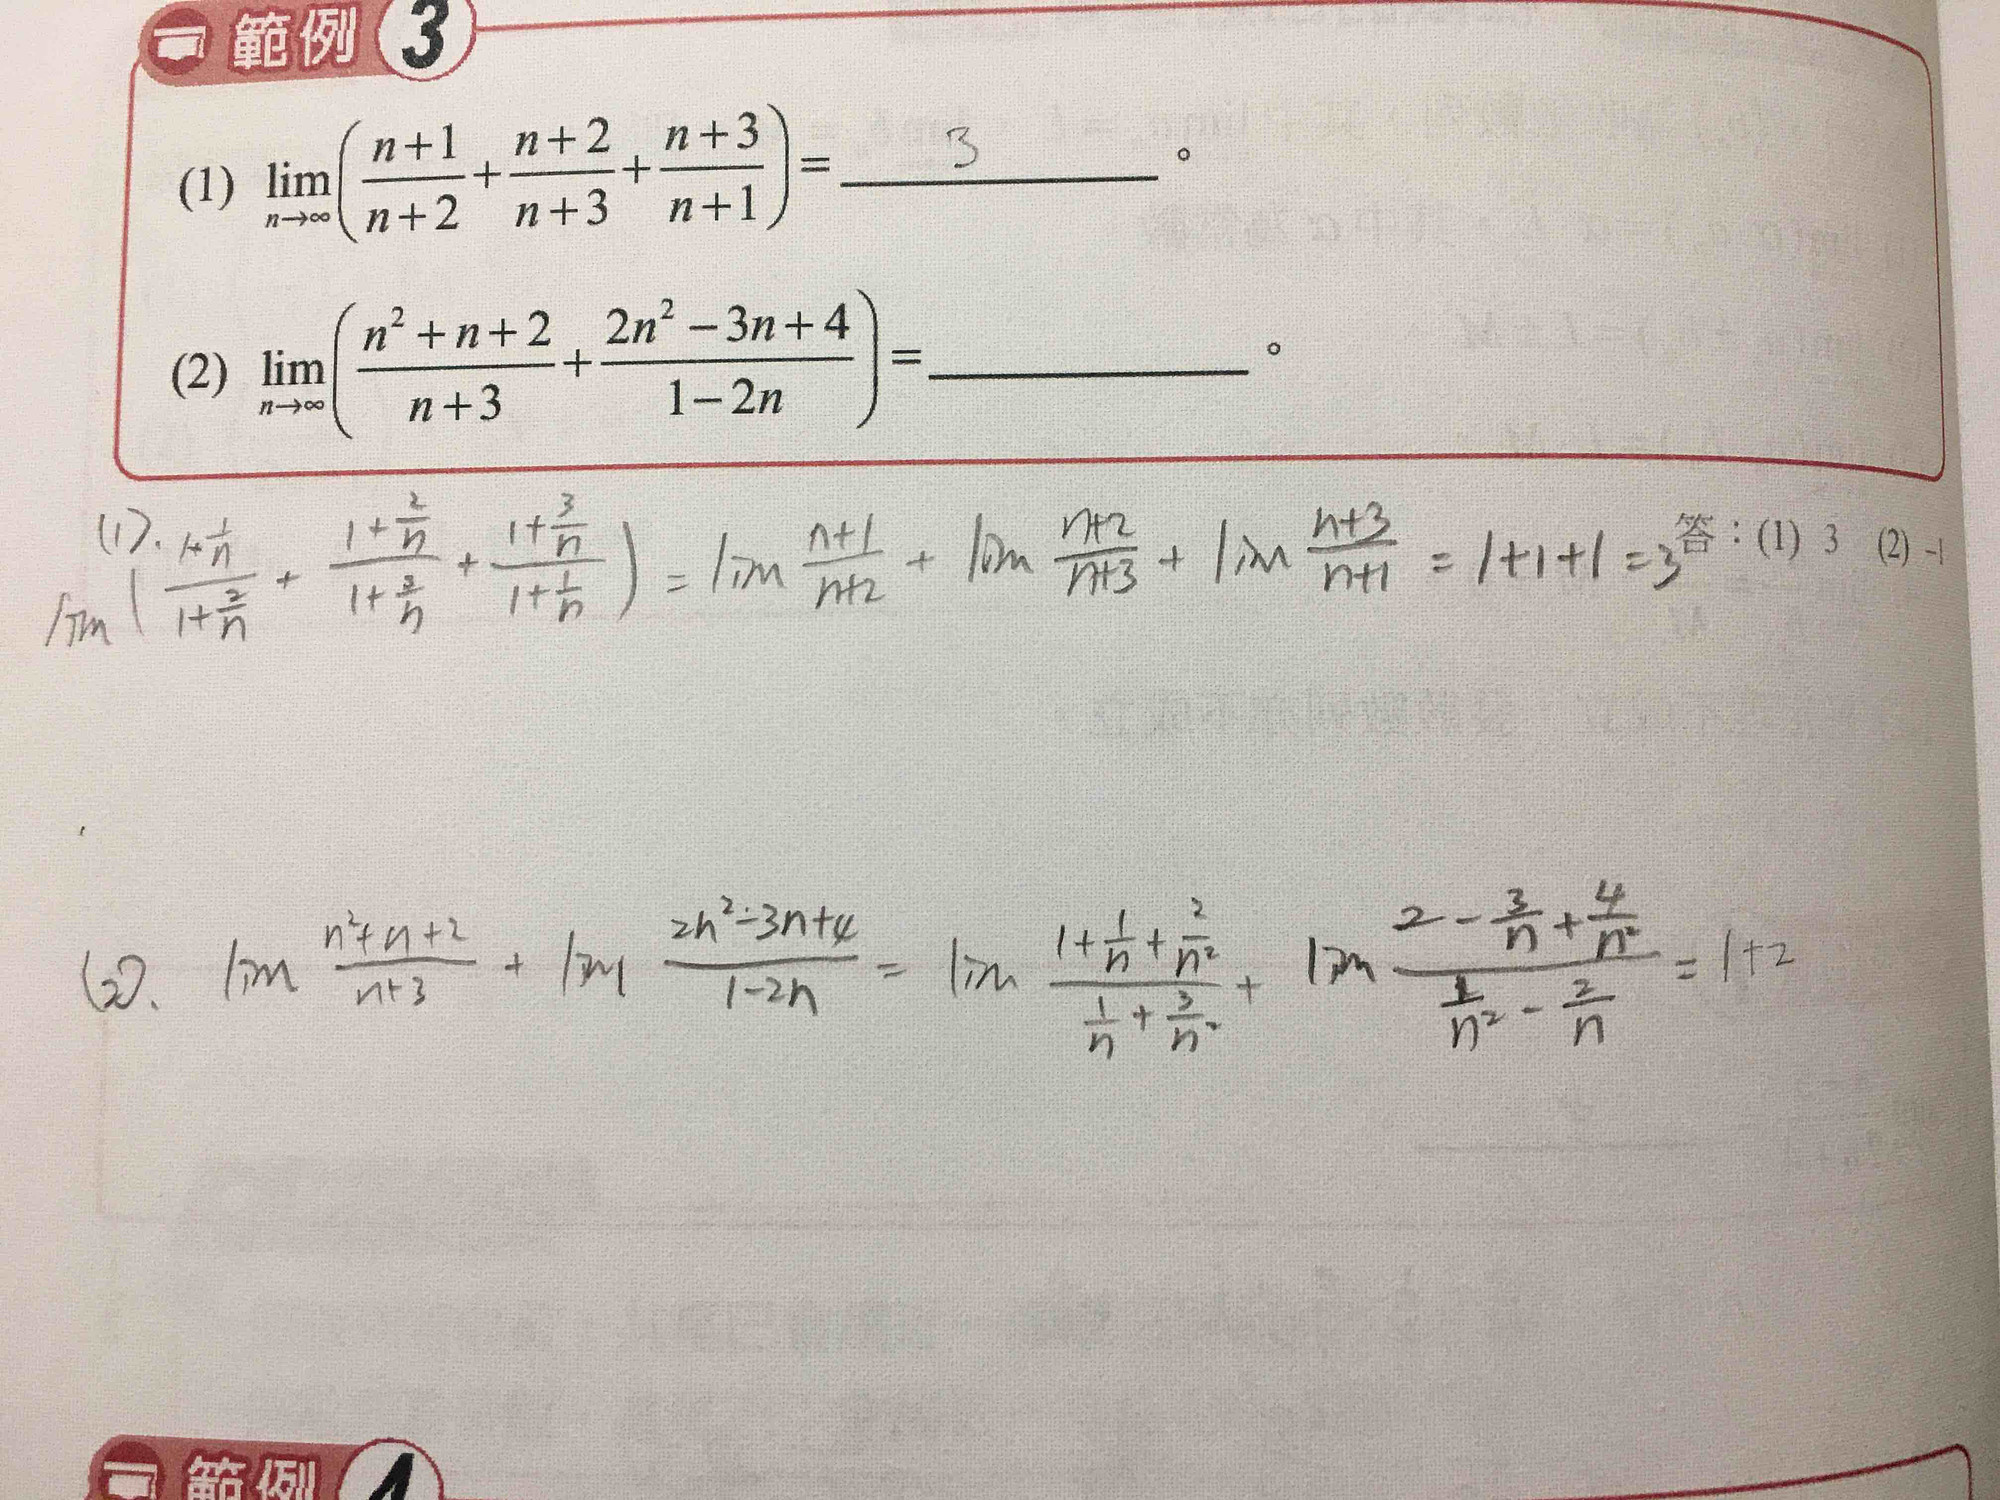 範例 3
(1) lim n→∞ ( (n+1)/(n+2) + (n+2)/(n+3) + (n+3)/(n+1) ) = 3 。
(2) lim n→∞ ( (n²+n+2)/(n+3) + (2n²−3n+4)/(1−2n) ) = ______ 。
答：(1) 3 (2) -1
(1). lim ( (1+1/n)/(1+2/n) + (1+2/n)/(1+3/n) + (1+3/n)/(1+1/n) ) = lim (n+1)/(n+2) + lim (n+2)/(n+3) + lim (n+3)/(n+1) = 1+1+1 = 3
(2). lim (n²+n+2)/(n+3) + lim (2n²-3n+4)/(1-2n) = lim (1+1/n+2/n²)/(1/n+3/n²) + lim (2-3/n+4/n²)/(1/n²-2/n) = 1+2
範例 4